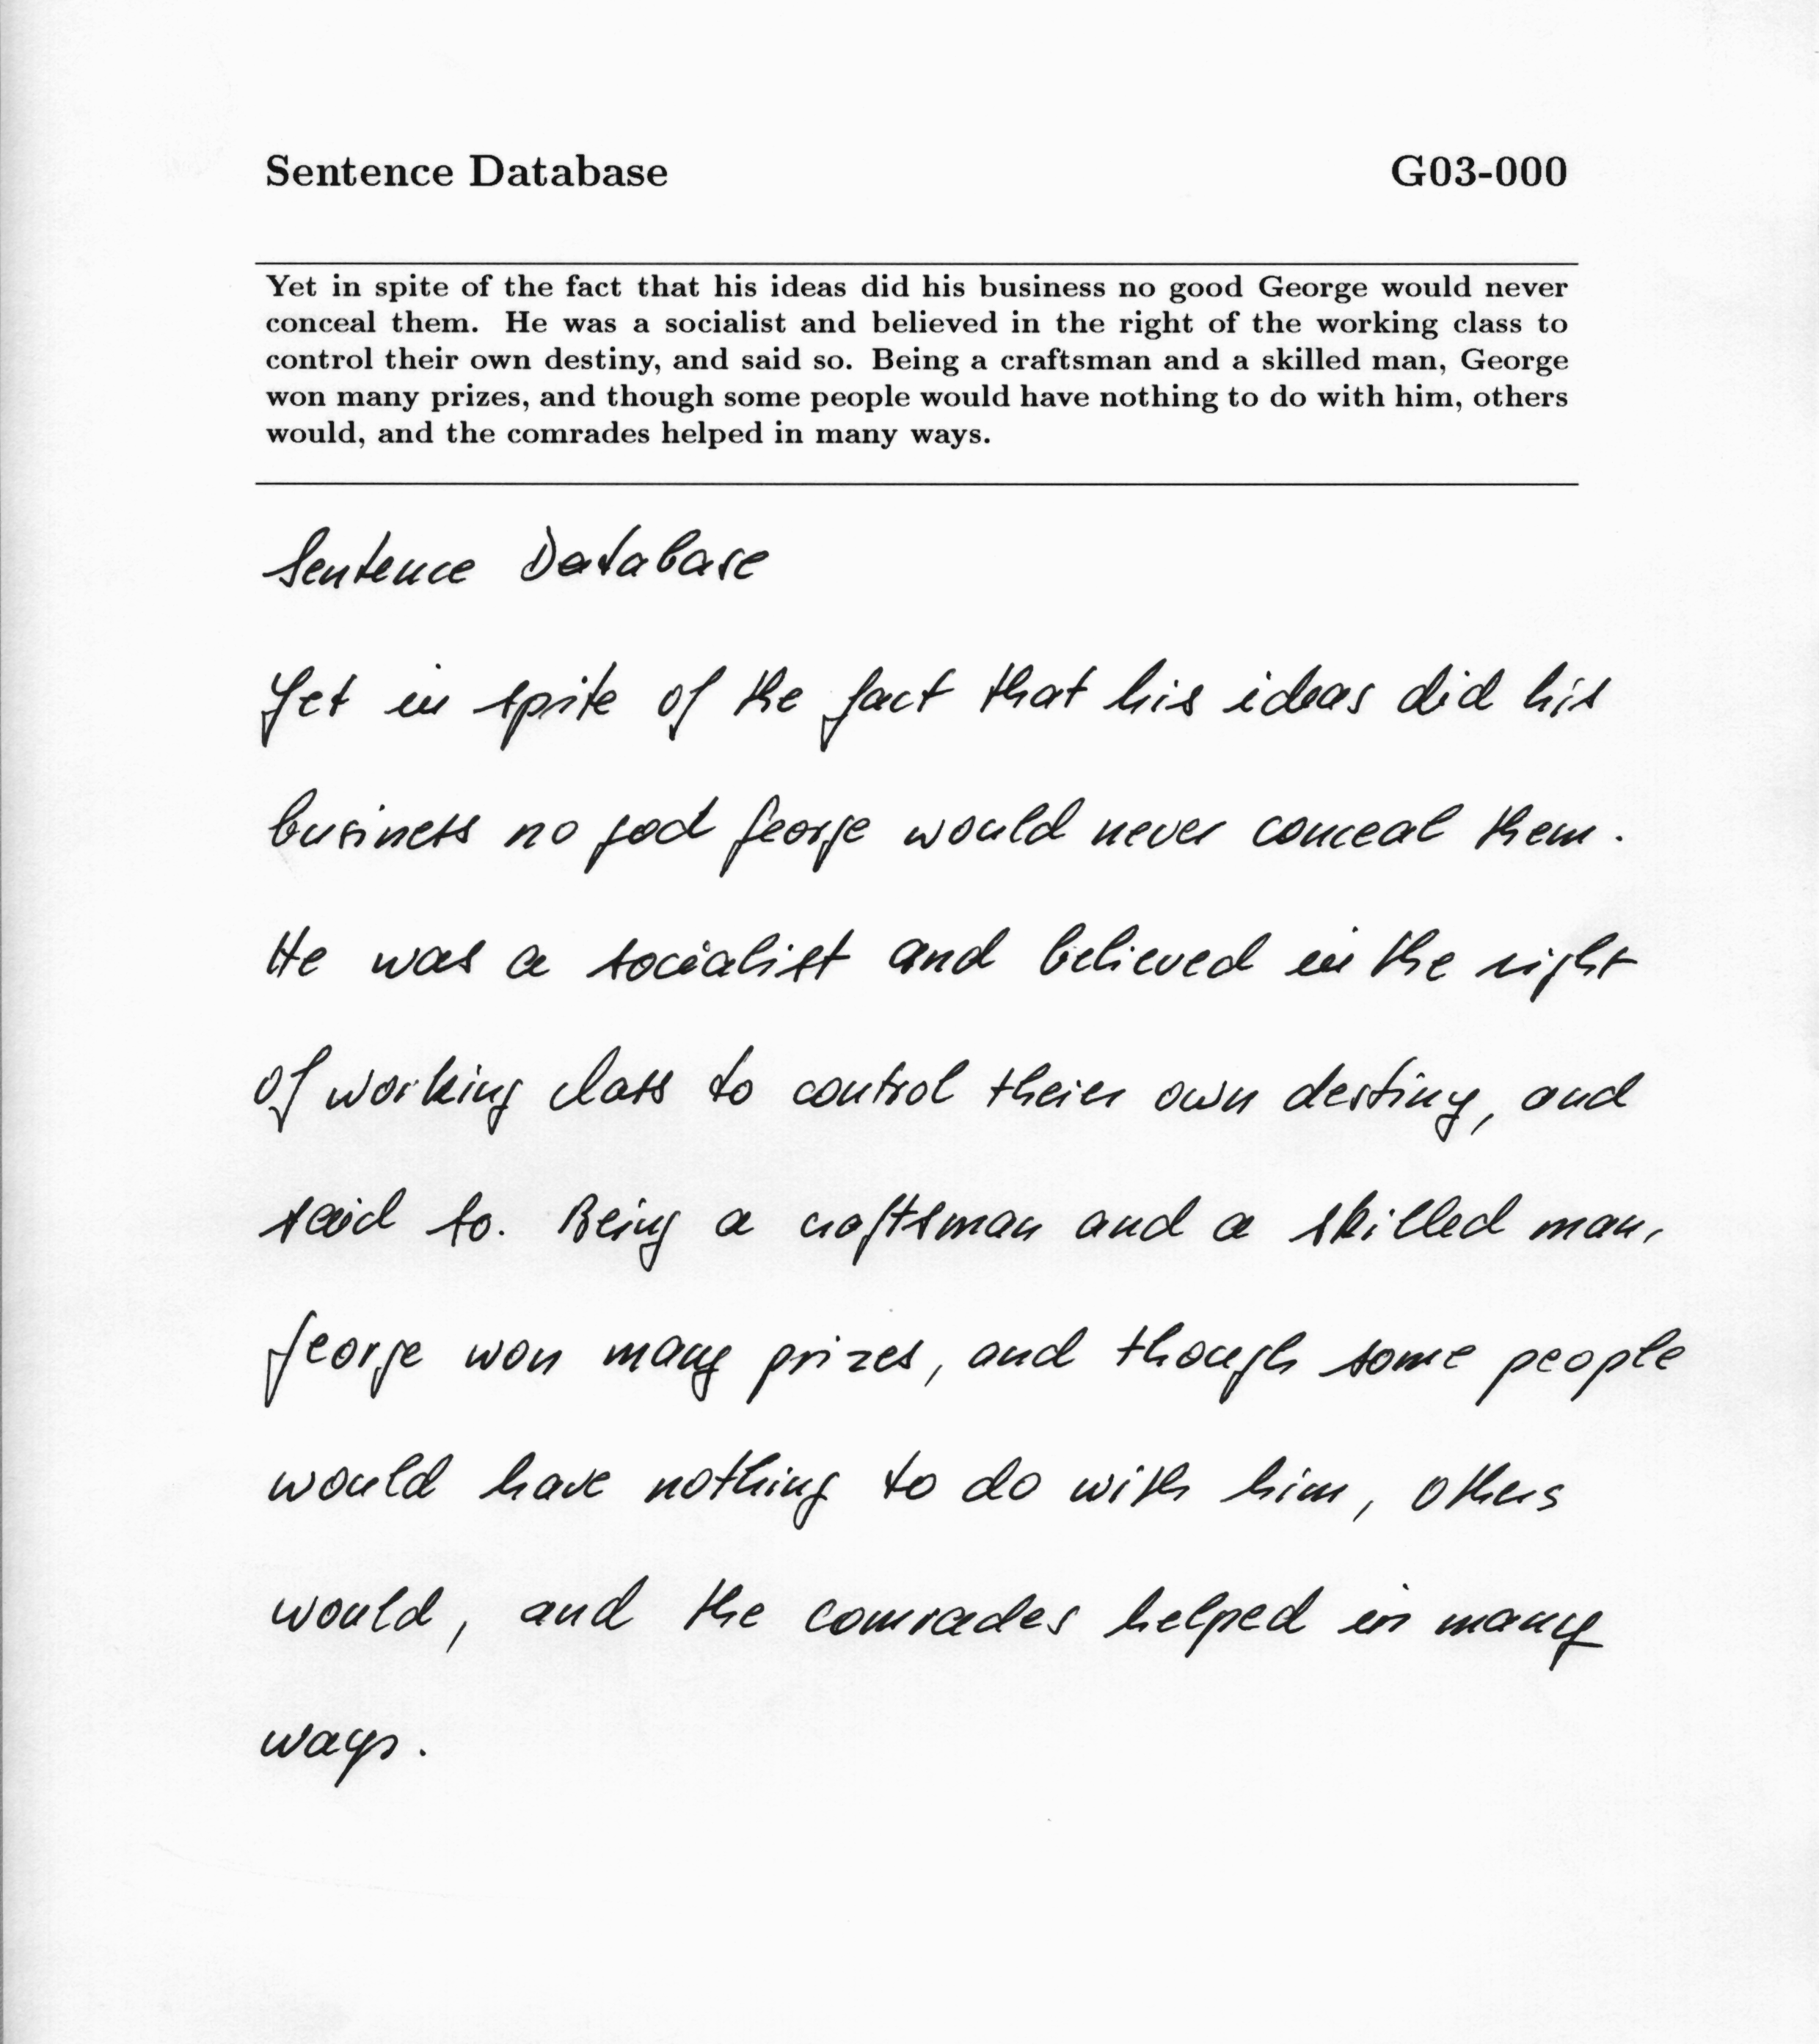 Sentence Database G03-000
Yet in spite of the fact that his ideas did his business no good George would never
conceal them. He was a socialist and believed in the right of the working class to
control their own destiny, and said so. Being a craftsman and a skilled man, George
won many prizes, and though some people would have nothing to do with him, others
would, and the comrades helped in many ways.
Sentence Database
Yet in spite of the fact that his ideas did his
business no god George would never conceal them.
He was a socialist and believed in the right
of working class to control theier own destiny, and
said so. Being a craftsman and a skilled man,
George won many prizes, and though some people
would have nothing to do with him, others
would, and the comrades helped in many
ways.